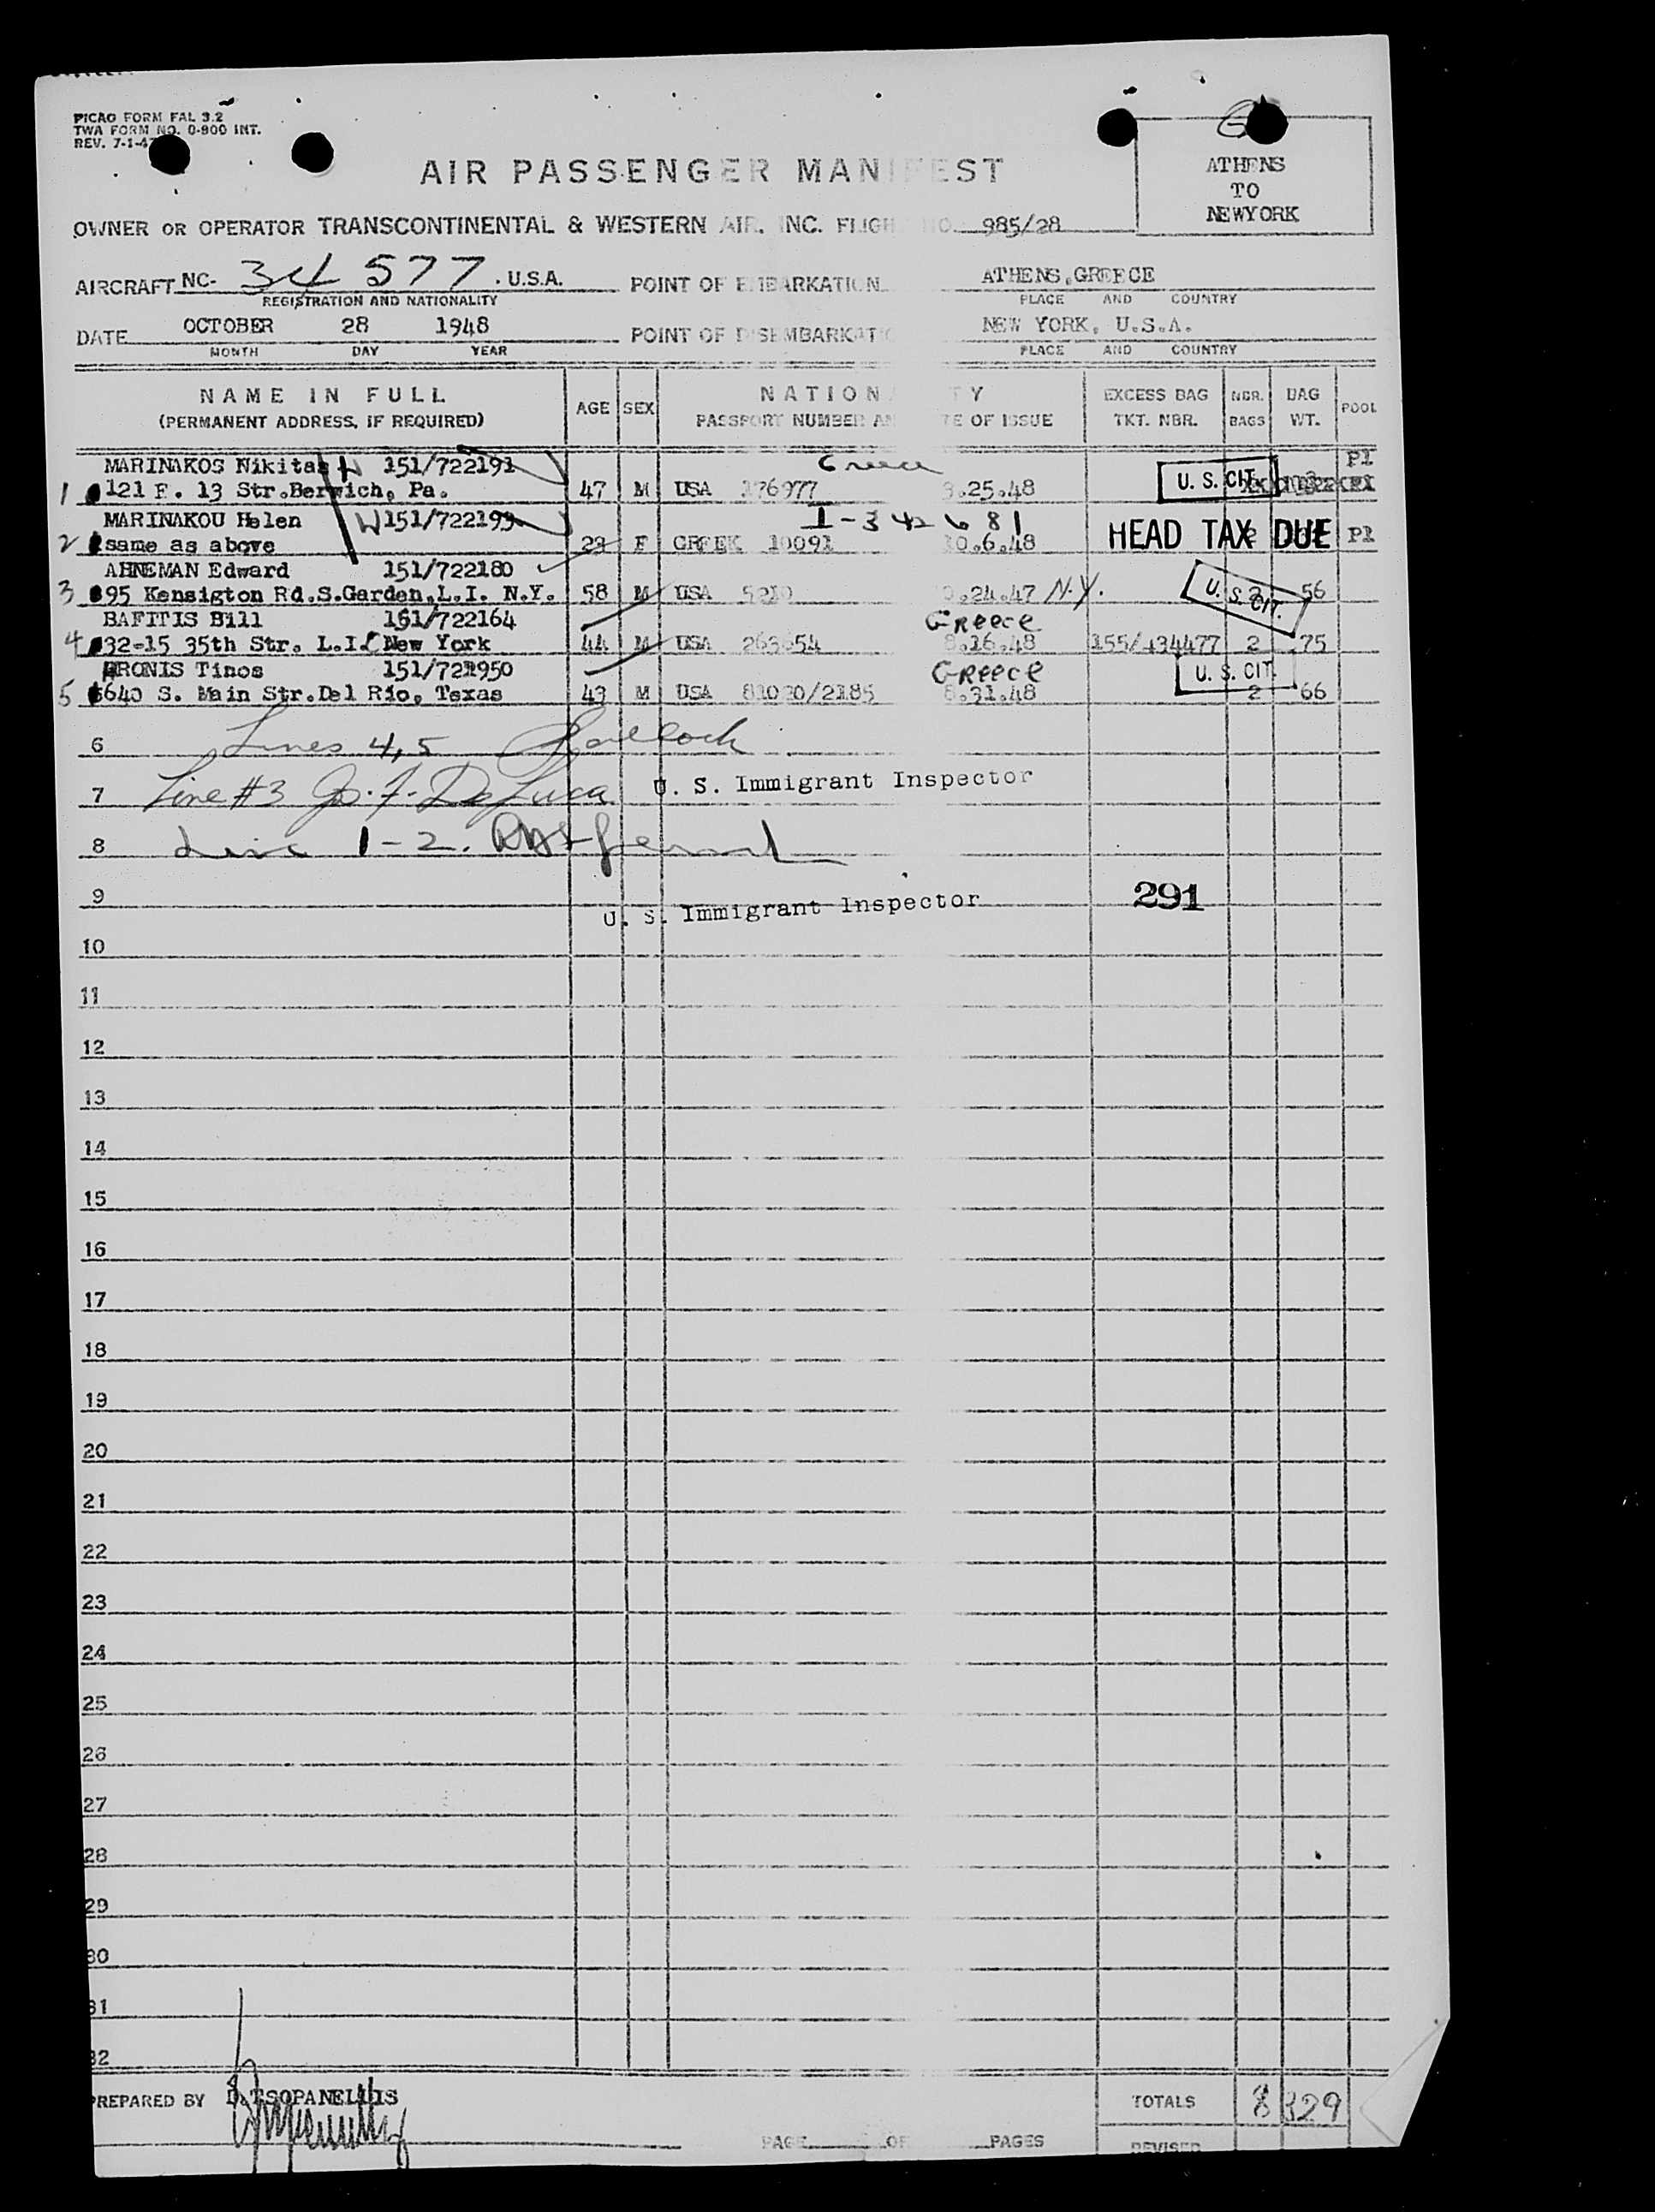 PICAO FORM FAL 3.2
TWA FORM NO. 0-800 INT.
REV. 7-1-47
AIR PASSENGER MANIFEST
ATHENS
TO
NEWYORK
OWNER OR OPERATOR TRANSCONTINENTAL & WESTERN AIR. INC. FLIGHT NO. 985/28
AIRCRAFT NC- 34577 . U.S.A. POINT OF EMBARKATION ATHENS,GREECE
REGISTRATION AND NATIONALITY PLACE AND COUNTRY
DATE OCTOBER 28 1948 POINT OF DISEMBARKATION NEW YORK, U.S.A.
MONTH DAY YEAR PLACE AND COUNTRY
NAME IN FULL AGE SEX NATIONALITY EXCESS BAG NBR. BAG POOL
(PERMANENT ADDRESS, IF REQUIRED) PASSPORT NUMBER AND DATE OF ISSUE TKT. NBR. BAGS WT.
MARINAKOS Nikitas W 151/722191 Greece P1
1 121 F. 13 Str.Berwich, Pa. 47 M USA 176977 9.25.48 U. S. CIT.
MARINAKOU Helen W 151/722193 I-342681
2 same as above 23 F GREEK 10091 10.6.48 HEAD TAX DUE P1
AHNEMAN Edward 151/722180
3 95 Kensigton Rd.S.Garden,L.I. N.Y. 58 M USA 5210 .24.47 N.Y. U. S. CIT. 2 56
BAFITIS Bill 151/722164 Greece
4 32-15 35th Str. L.I.C New York 44 M USA 263654 8.16.48 155/434477 2 75
DRONIS Tinos 151/721950 Greece U. S. CIT.
5 640 S. Main Str.Del Rio, Texas 43 M USA 81020/2185 8.31.48 2 66
6 Lines 4,5
7 Line #3 Jo. F. De Luca U. S. Immigrant Inspector
8 Line 1-2.
9 U. S. Immigrant Inspector 291
10
11
12
13
14
15
16
17
18
19
20
21
22
23
24
25
26
27
28
29
30
31
32
PREPARED BY D.TSOPANELLIS TOTALS 8 329
PAGE OF PAGES REVISED